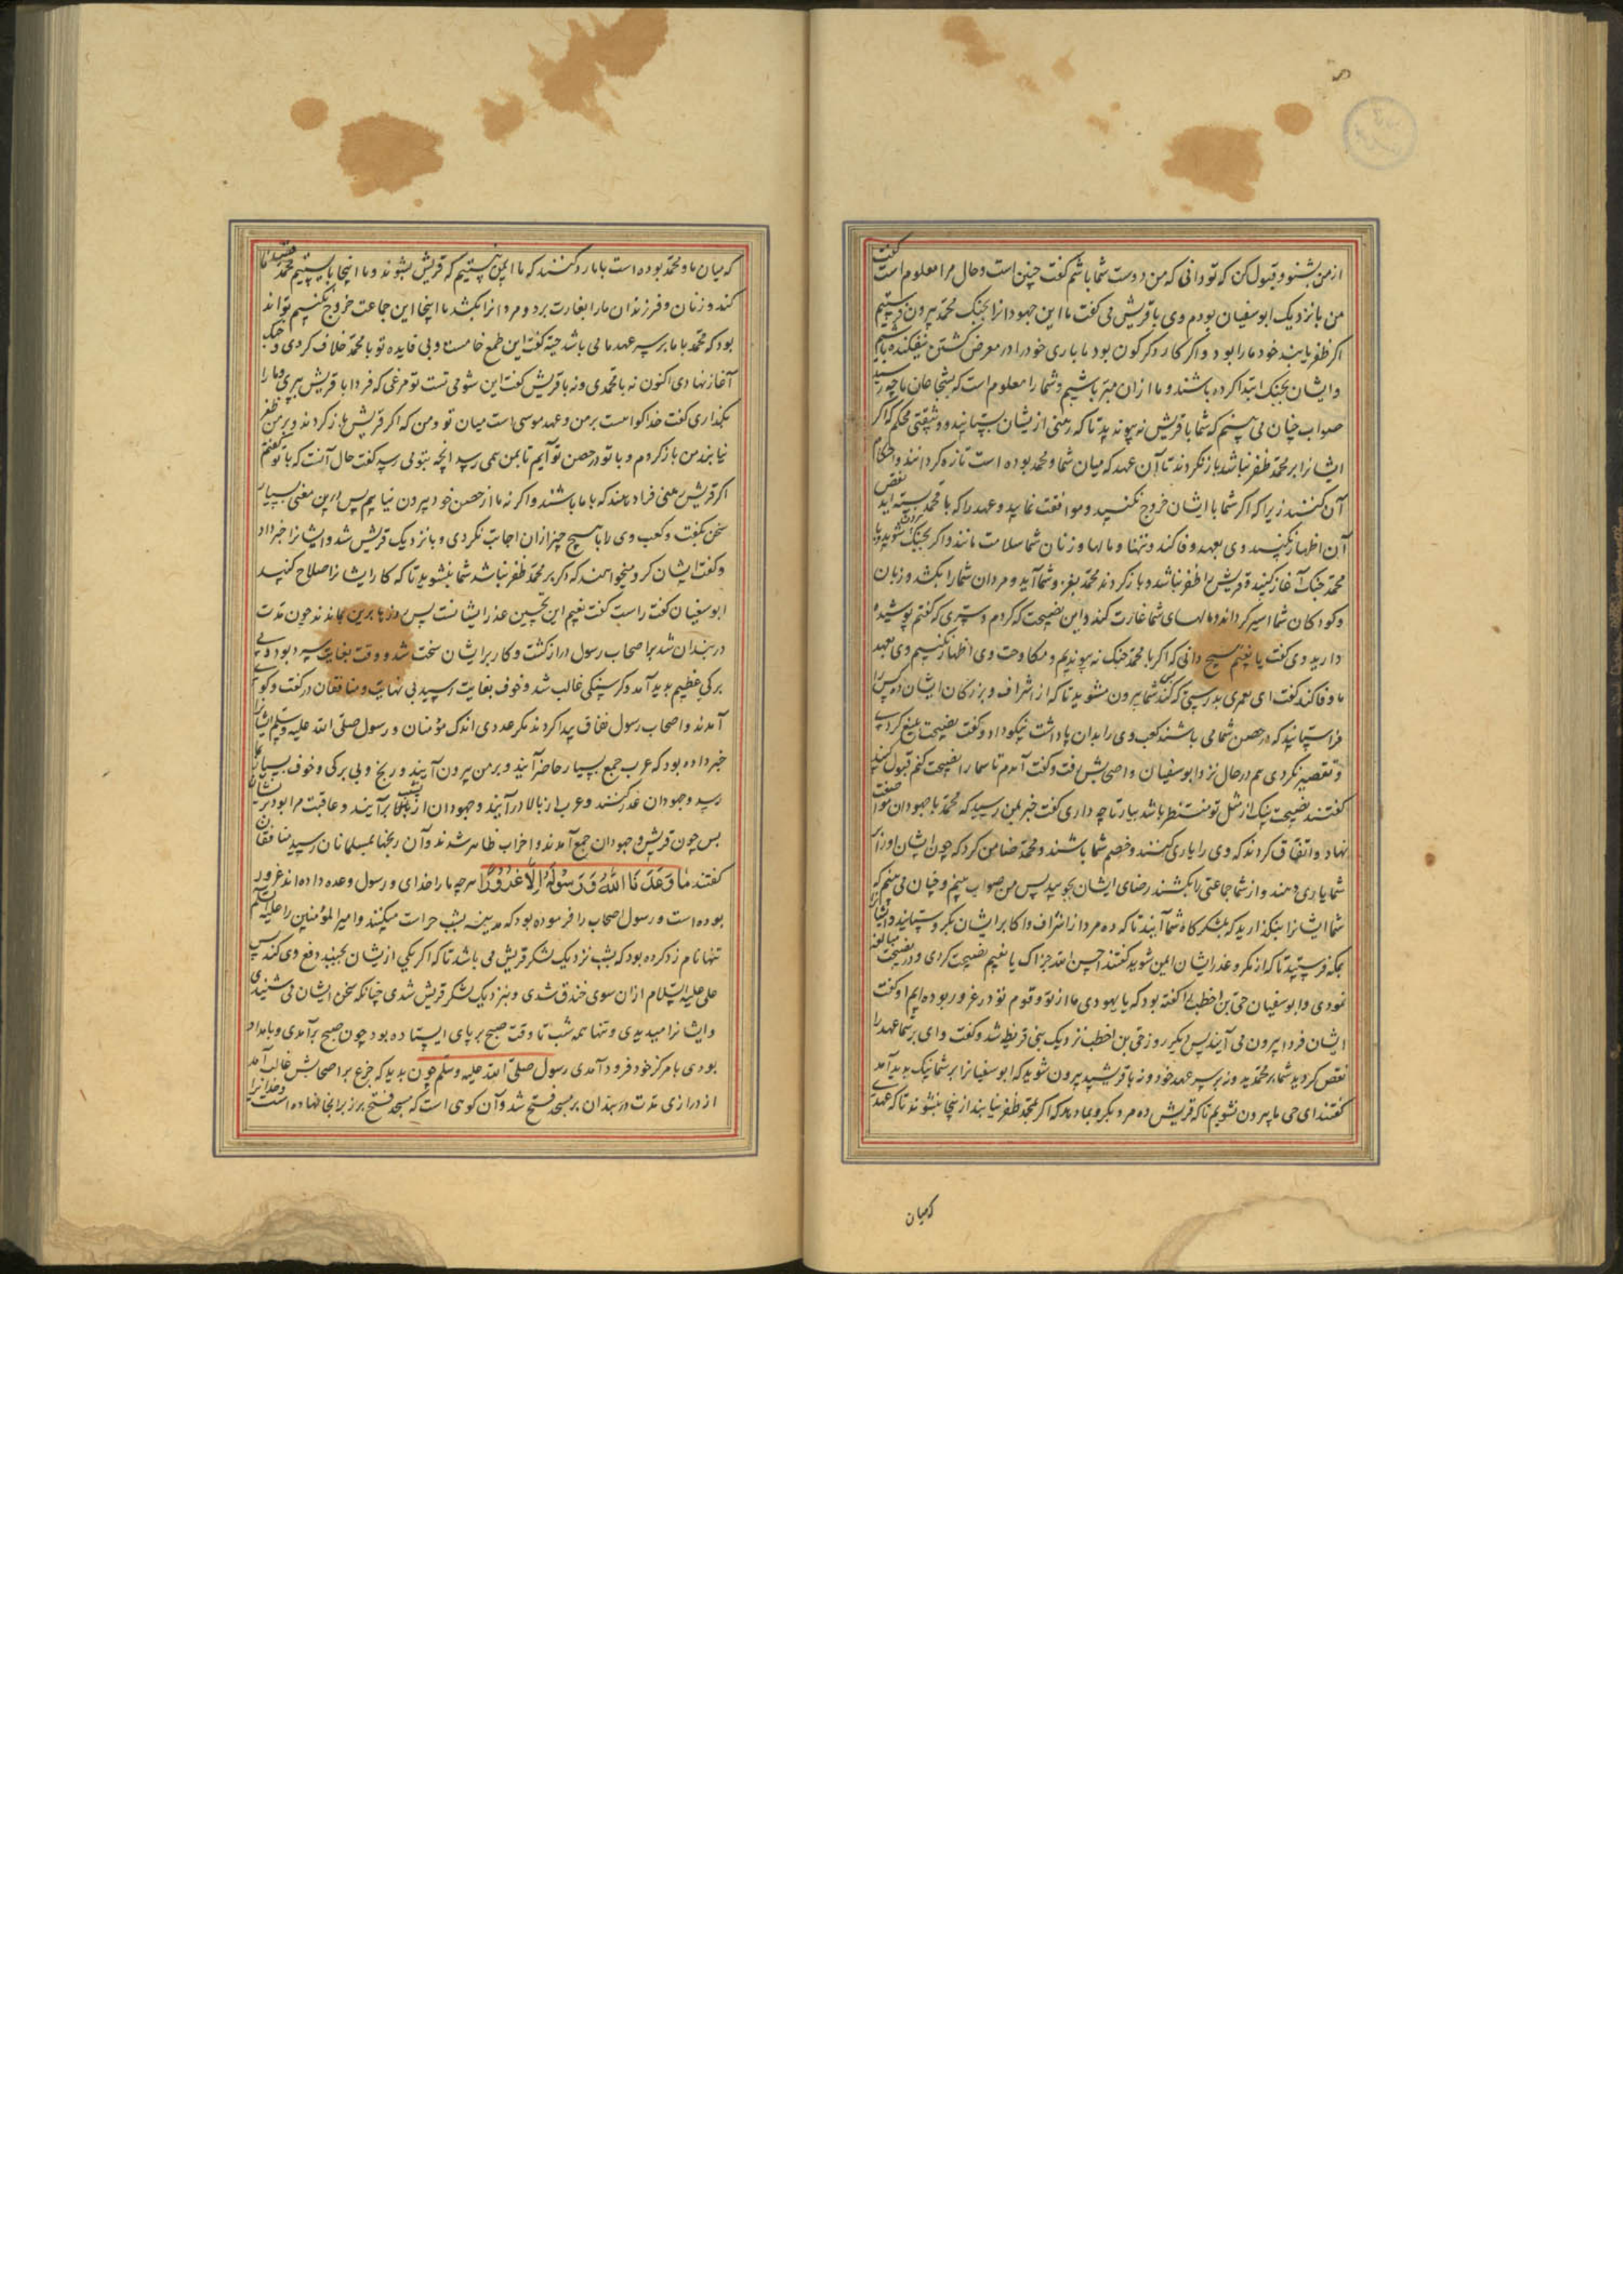 از من بشنو و قبول کن که تو دانی که من دوست شما باشم گفت چنین است و حال مرا معلوم است گفت
من با نزدیک ابوسفیان بودم وی با قریش می گفت ما این جهودانرا بجنک محمد بیرون
اکر ظفر یابند خود ما را بود و اکر کار دکرکون بود ما باری خود را در معرض کشتن نیفکنده باشیم
و ایشان بجنک ابتدا کرده باشند و ما ازان مبتر باشیم و شما را معلوم است که بشجاعان ما چه رسید
صواب چنان می بینم که شما با قریش نه پیوندید تا که رهنی از ایشان بستانید و وثیقتی محکم که اکر
ایشانرا بر محمد ظفر نباشد بازنکردند تا آن عهد که میان شما و محمد بوده است تازه کردانند و احکام
آن کنند زیرا که اکر شما با ایشان خروج نکنید و موافقت نمایید و عهد را که با محمد بسته اید نقض
آن اظهار نکنید وی بعهد وفا کند و تنها و مالها و زنان شما سلامت مانند و اکر بجنک
محمد جنک آغاز کنید و قریش را ظفر نباشد و بازکردند محمد بغزو شما آید و مردان شما را بکشد و زنان
و کودکان شما اسیر کرداند و مالهای شما غارت کند و این نصیحت که کردم و سری که گفتم پوشیده
دارید وی گفت یا نعیم هیچ دانی که اکر با محمد جنک نه پیوندیم و مکاوحت وی اظهار نکنیم وی بعهد
ما وفا کند گفت ای لعمری بدرستی که کند شما بیرون مشوید تا که از اشراف و بزرکان ایشان ده کس را
فراستانید که در حصن شما می باشند کعب وی را بدان پاداشت نیکو داد و گفت نصیحت بلیغ کردی
و تقصیر نکردی هم در حال نزد ابوسفیان و اصحابش رفت و گفت آمدم تا شما را نصیحت کنم قبول کنید
گفتند نصیحت نیک از مثل تو منتظر باشد بیار تا چه داری گفت خبر بمن رسید که محمد با جهودان مواضعت
نهاد و اتفاق کردند که وی را یاری کنند و خصم شما باشند و محمد ضامن کرد که چون ایشان او را بر
شما یاری دهند و از شما جماعتی را بکشند رضای ایشان بجوید پس من صواب بینم و چنان می بینم که
شما ایشانرا بنکذارید که بلشکرکاه شما آیند تا که ده مرد از اشراف و اکابر ایشان بکروستانید و ایشانرا
بمکه فرستید تا که از مکر و غدر ایشان ایمن شوید گفتند احسن الله جزاک یا نعیم نصیحت کردی و در نصیحت مبالغه
نمودی و ابوسفیان حی بن اخطب را گفته بود که یا یهودی ما از تو و قوم تو در غرور بوده ایم او گفت
ایشان فردا بیرون می آیند پس دیکر روز حی بن اخطب نزدیک بنی قریظه شد و گفت وای بر شما عهد را
نقض کردید شما بر محمدید و نه بر سر عهد خود و نه با قریشید بیرون شوید که ابوسفیانرا بر شما نیک بدید آمد
گفتند ای حی ما بیرون نشویم تا که قریش ده مرد بکرو بما دهد که اکر بمحمد ظفر نیابند از اینجا بنشوند تا که عهدی
که میان
که میان ما و محمد بوده است با ما رد کنند که ما ایمن نیستیم که قریش بشوند و ما اینجا بایستیم محمد قصد ما
کند و زنان و فرزندان ما را بغارت برد و مردانرا بکشد ما اینجا این جماعت خروج نکنیم تواند
بود که محمد با ما بر سر عهد ما می باشد حی گفت این طمع خامست و بی فایده تو با محمد خلاف کردی و جنک
آغاز نهادی اکنون نه با محمدی و نه با قریش گفت این شومی تست تو مرغی که فردا با قریش بپری و ما را
بکذاری گفت خدا کواهست بر من و عهد موسی است میان تو و من که اکر قریش باز کردند و بر من ظفر
نیابند من باز کردم و با تو در حصن تو آیم تا بمن همی رسد انچه بتو می رسد گفت حال آنست که با تو گفتم
اکر قریش رهنی فرا دهند که با ما باشند و اکر نه ما از حصن خود بیرون نیاییم پس درین معنی بسیار
سخن بگفت و کعب وی را با هیچ چیز ازان اجابت نکردی و با نزدیک قریش شد و ایشانرا خبر داد
و گفت ایشان کرو میخواهند که اکر بر محمد ظفر نباشد شما بنشوید تا که کار ایشانرا اصلاح کنید
ابوسفیان گفت راست گفت نعیم این نخستین غدر ایشانست پس روزها برین بماندند چون مدت
دربندان شد بر اصحاب رسول دراز کشت و کار بر ایشان سخت شد و وقت بغایت سرد بود و بی
برکی عظیم بدید آمد و کرسنکی غالب شد و خوف بغایت رسید بی نهایت و منافقان در گفت و کوی
آمدند و اصحاب رسول نفاق پیدا کردند مکر عددی اندک مؤمنان و رسول صلی الله علیه و سلم ایشانرا
خبر داده بود که عرب جمع بسیار حاضر آیند و بر من بیرون آیند و رنج و بی برکی و خوف بسیار
رسد و جهودان غدر کنند و عرب از بالا درآیند و جهودان از نشیب برآیند و عاقبت مرا بود بر ایشان
پس چون قریش و جهودان جمع آمدند و احزاب ظاهر شدند و آن رنجها بمسلمانان رسید منافقان
گفتند مَا وَعَدَنَا اللّٰهُ وَرَسُولُهُ اِلَّا غُرُورًا هر چه ما را خدای و رسول وعده داده اند غرور
بوده است و رسول اصحاب را فرموده بود که مدینه بشب حراست میکنند و امیرالمؤمنین را علیه السلم
تنها نامزد کرده بود که بشب نزدیک لشکر قریش می باشد تا که اکر یکی از ایشان بجنبد دفع وی کند پس
علی علیه السلام ازان سوی خندق شدی و بنزدیک لشکر قریش شدی چنانکه سخن ایشان می شنیدی
و ایشانرا میدیدی و تنها همه شب تا وقت صبح بر پای ایستاده بود چون صبح برآمدی و بامداد
بودی با مرکز خود فرود آمدی رسول صلی الله علیه وسلم چون بدید که جزع بر اصحابش غالب آمد
از درازی مدت دربندان بر مسجد فتح شد و آن کوهی است که مسجد فتح برز برانجا نهاده است و خدایرا